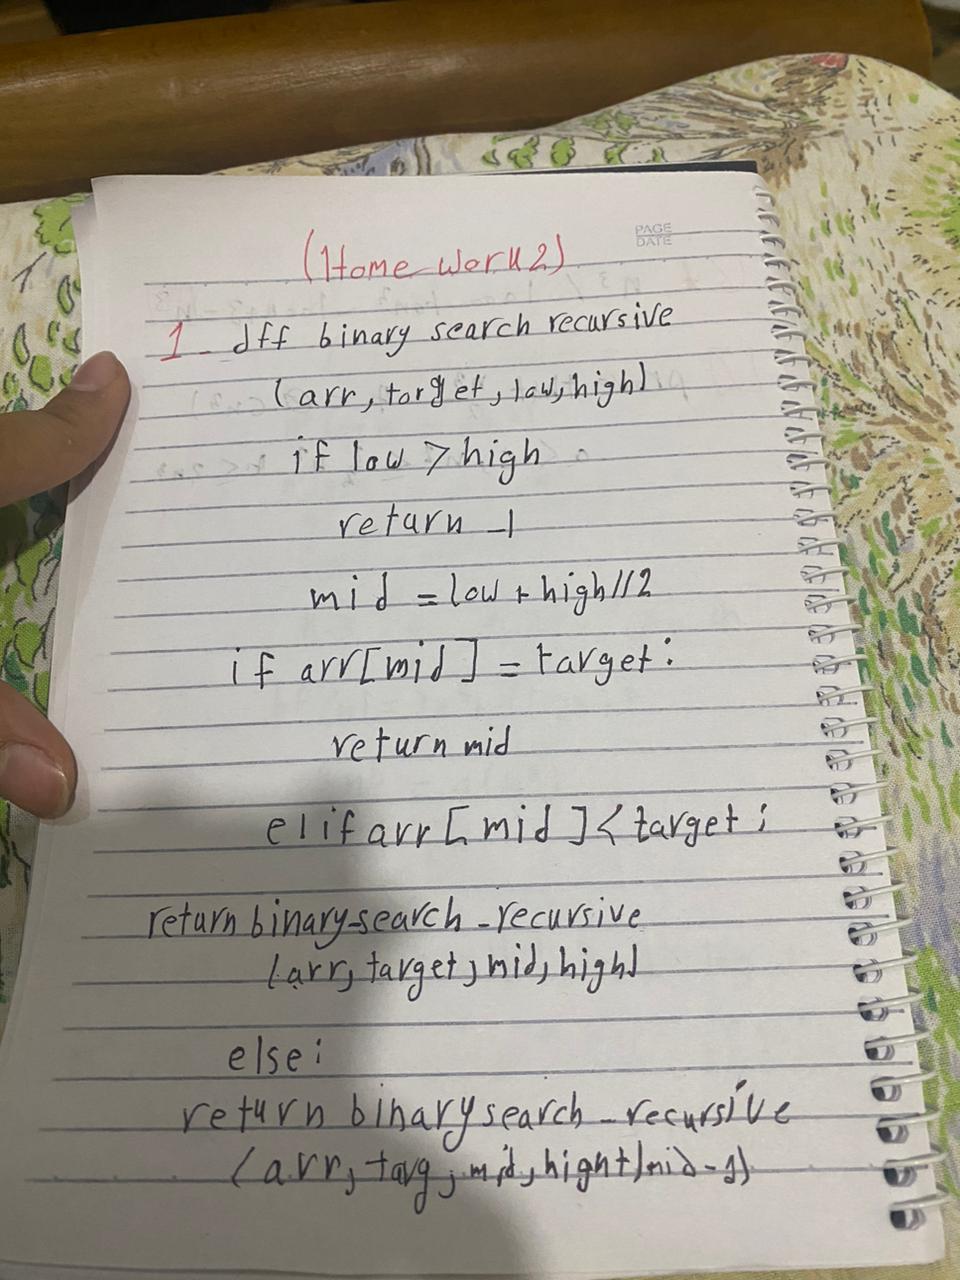 PAGE
DATE
(Home Work 2)
1- dff binary search recursive
(arr, target, low, high)
if low > high
return -1
mid = low + high//2
if arr[mid] = target:
return mid
elif arr[mid] < target;
return binary-search-recursive
(arr, target, mid, high)
else:
return binary search-recursive
(arr, targ, mid, hight mid-1)